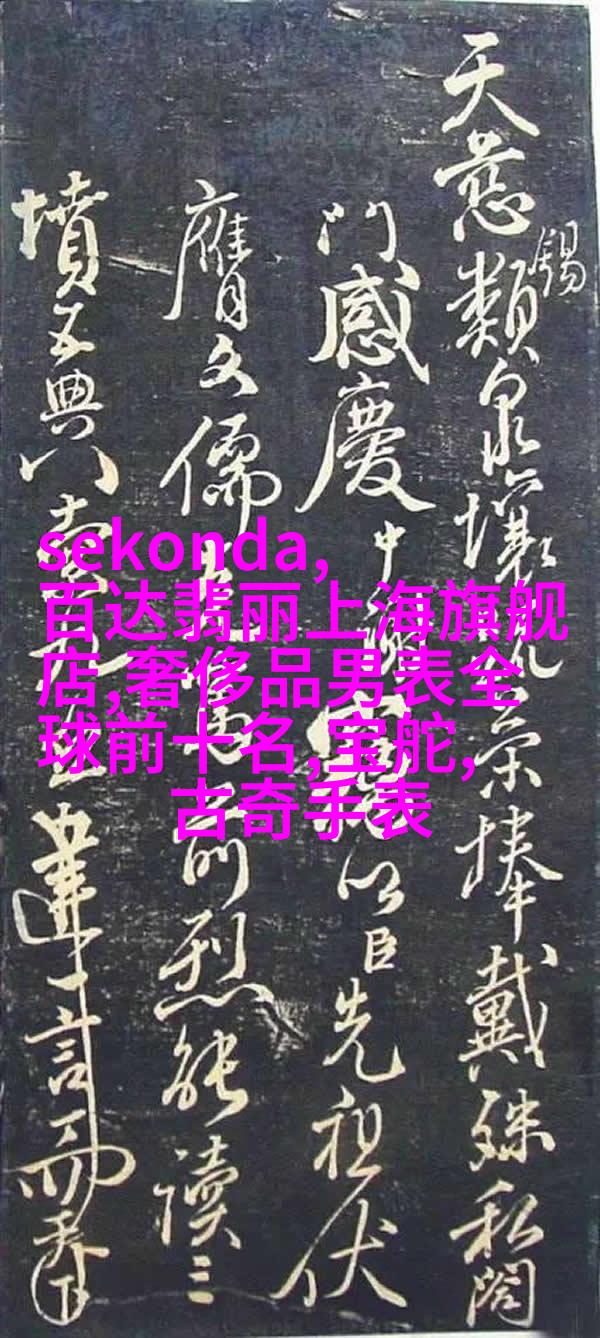 天慈錫類泉壤榮捧戴殊私閤
門感慶中以臣先祖伏
膺文儒前烈能讀三
墳五典八言
sekonda,
百达翡丽上海旗舰
店,奢侈品男表全
球前十名,宝舵,
古奇手表